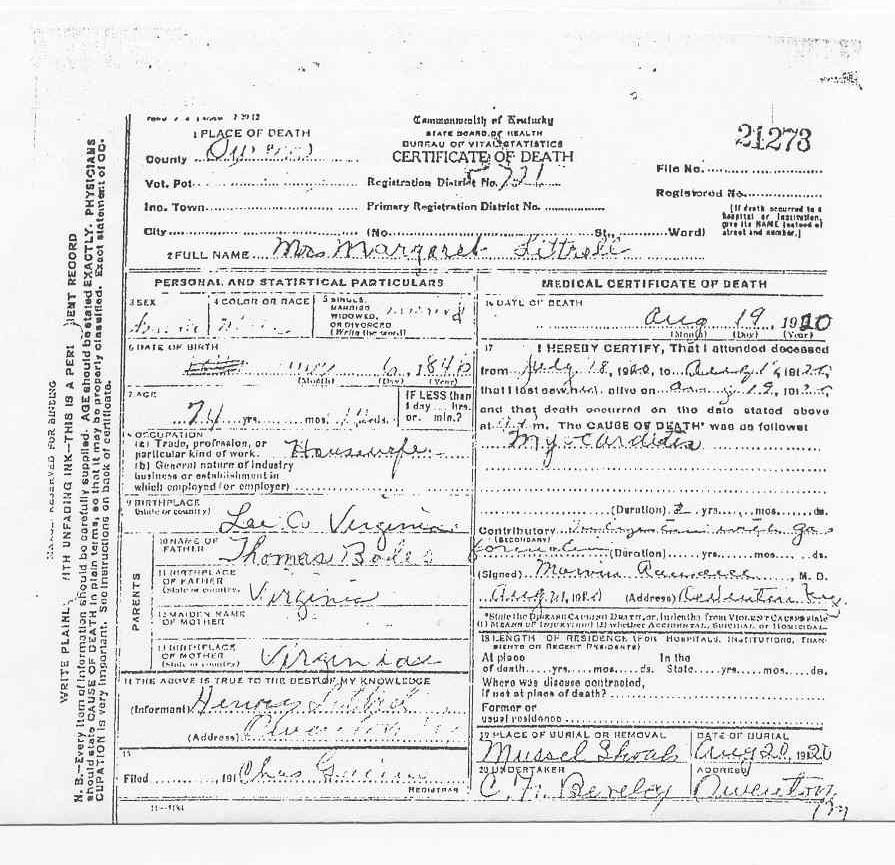 Commonwealth of Kentucky
STATE BOARD OF HEALTH
BUREAU OF VITAL STATISTICS
CERTIFICATE OF DEATH
21273
1 PLACE OF DEATH
County
Vot. Pct.
Inc. Town
City
Registration District No. 721
Primary Registration District No.
(No. St., Ward)
File No.
Registered No.
[If death occurred in a
hospital or institution,
give its NAME instead of
street and number.]
2 FULL NAME Mrs Margaret Littrell
PERSONAL AND STATISTICAL PARTICULARS
3 SEX
4 COLOR OR RACE
5 SINGLE,
MARRIED
WIDOWED,
OR DIVORCED
(Write the word)
6 DATE OF BIRTH
6, 184
(Month) (Day) (Year)
7 AGE
74 yrs. mos. ds.
IF LESS than
1 day... hrs.
or... min.?
OCCUPATION
(a) Trade, profession, or
particular kind of work. Housewife
(b) General nature of industry
business or establishment in
which employed (or employer)
9 BIRTHPLACE
(State or country) Lee Co Virginia
PARENTS
10 NAME OF
FATHER Thomas Boles
11 BIRTHPLACE
OF FATHER
(State or country) Virginia
12 MAIDEN NAME
OF MOTHER
13 BIRTHPLACE
OF MOTHER
(State or country)
THE ABOVE IS TRUE TO THE BEST OF MY KNOWLEDGE
(Informant) Henry
(Address)
15
Filed 191 Chas
REGISTRAR
MEDICAL CERTIFICATE OF DEATH
16 DATE OF DEATH
Aug 19, 1920
(Month) (Day) (Year)
17 I HEREBY CERTIFY, That I attended deceased
from July 18, 1920, to Aug
that I last saw h alive on 19, 19
and that death occurred on the date stated above
at m. The CAUSE OF DEATH* was as follows
Myocarditis
(Duration) 2 yrs. mos. ds.
Contributory
(SECONDARY)
(Duration) yrs. mos. ds.
(Signed) Marvin, M. D.
Aug 21, 19 (Address)
*State the DISEASE CAUSING DEATH, or, in deaths from VIOLENT CAUSES state
(1) MEANS OF INJURY; and (2) whether ACCIDENTAL, SUICIDAL, OR HOMICIDAL.
18 LENGTH OF RESIDENCE (FOR HOSPITALS, INSTITUTIONS, TRAN-
SIENTS OR RECENT RESIDENTS)
At place In the
of death yrs. mos. ds. State yrs. mos. ds.
Where was disease contracted,
if not at place of death?
Former or
usual residence
19 PLACE OF BURIAL OR REMOVAL
Mussel Shoals
DATE OF BURIAL
Aug 20, 1920
20 UNDERTAKER
ADDRESS
Owenton
Ky
WRITE PLAINLY, WITH UNFADING INK—THIS IS A PERMANENT RECORD
N. B.—Every item of information should be carefully supplied. AGE should be stated EXACTLY. PHYSICIANS
should state CAUSE OF DEATH in plain terms, so that it may be properly classified. Exact statement of OC-
CUPATION is very important. See instructions on back of certificate.